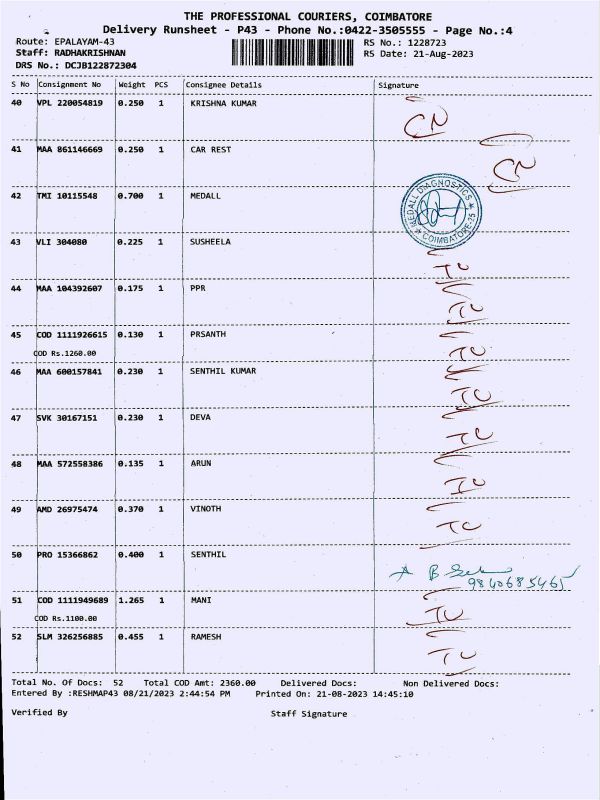 THE PROFESSIONAL COURIERS, COIMBATORE
Delivery Runsheet - P43 - Phone No.:0422-3505555 - Page No.:4
Route: EPALAYAM-43 RS No.: 1228723
Staff: RADHAKRISHNAN RS Date: 21-Aug-2023
DRS No.: DCJB122872304
S No Consignment No Weight PCS Consignee Details Signature
40 VPL 220054819 0.250 1 KRISHNA KUMAR CN
41 MAA 861146669 0.250 1 CAR REST CN
42 TMI 10115548 0.700 1 MEDALL MEDALL DIAGNOSTICS COIMBATORE-25
43 VLI 304080 0.225 1 SUSHEELA TC
44 MAA 104392607 0.175 1 PPR TC
45 COD 1111926615 0.130 1 PRSANTH TC
COD Rs.1260.00
46 MAA 600157841 0.230 1 SENTHIL KUMAR TC
47 SVK 30167151 0.230 1 DEVA TC
48 MAA 572558386 0.135 1 ARUN TC
49 AMD 26975474 0.370 1 VINOTH TC
50 PRO 15366862 0.400 1 SENTHIL 9840685465
51 COD 1111949689 1.265 1 MANI TC
COD Rs.1100.00
52 SLM 326256885 0.455 1 RAMESH TC
Total No. Of Docs: 52 Total COD Amt: 2360.00 Delivered Docs: Non Delivered Docs:
Entered By :RESHMAP43 08/21/2023 2:44:54 PM Printed On: 21-08-2023 14:45:10
Verified By Staff Signature